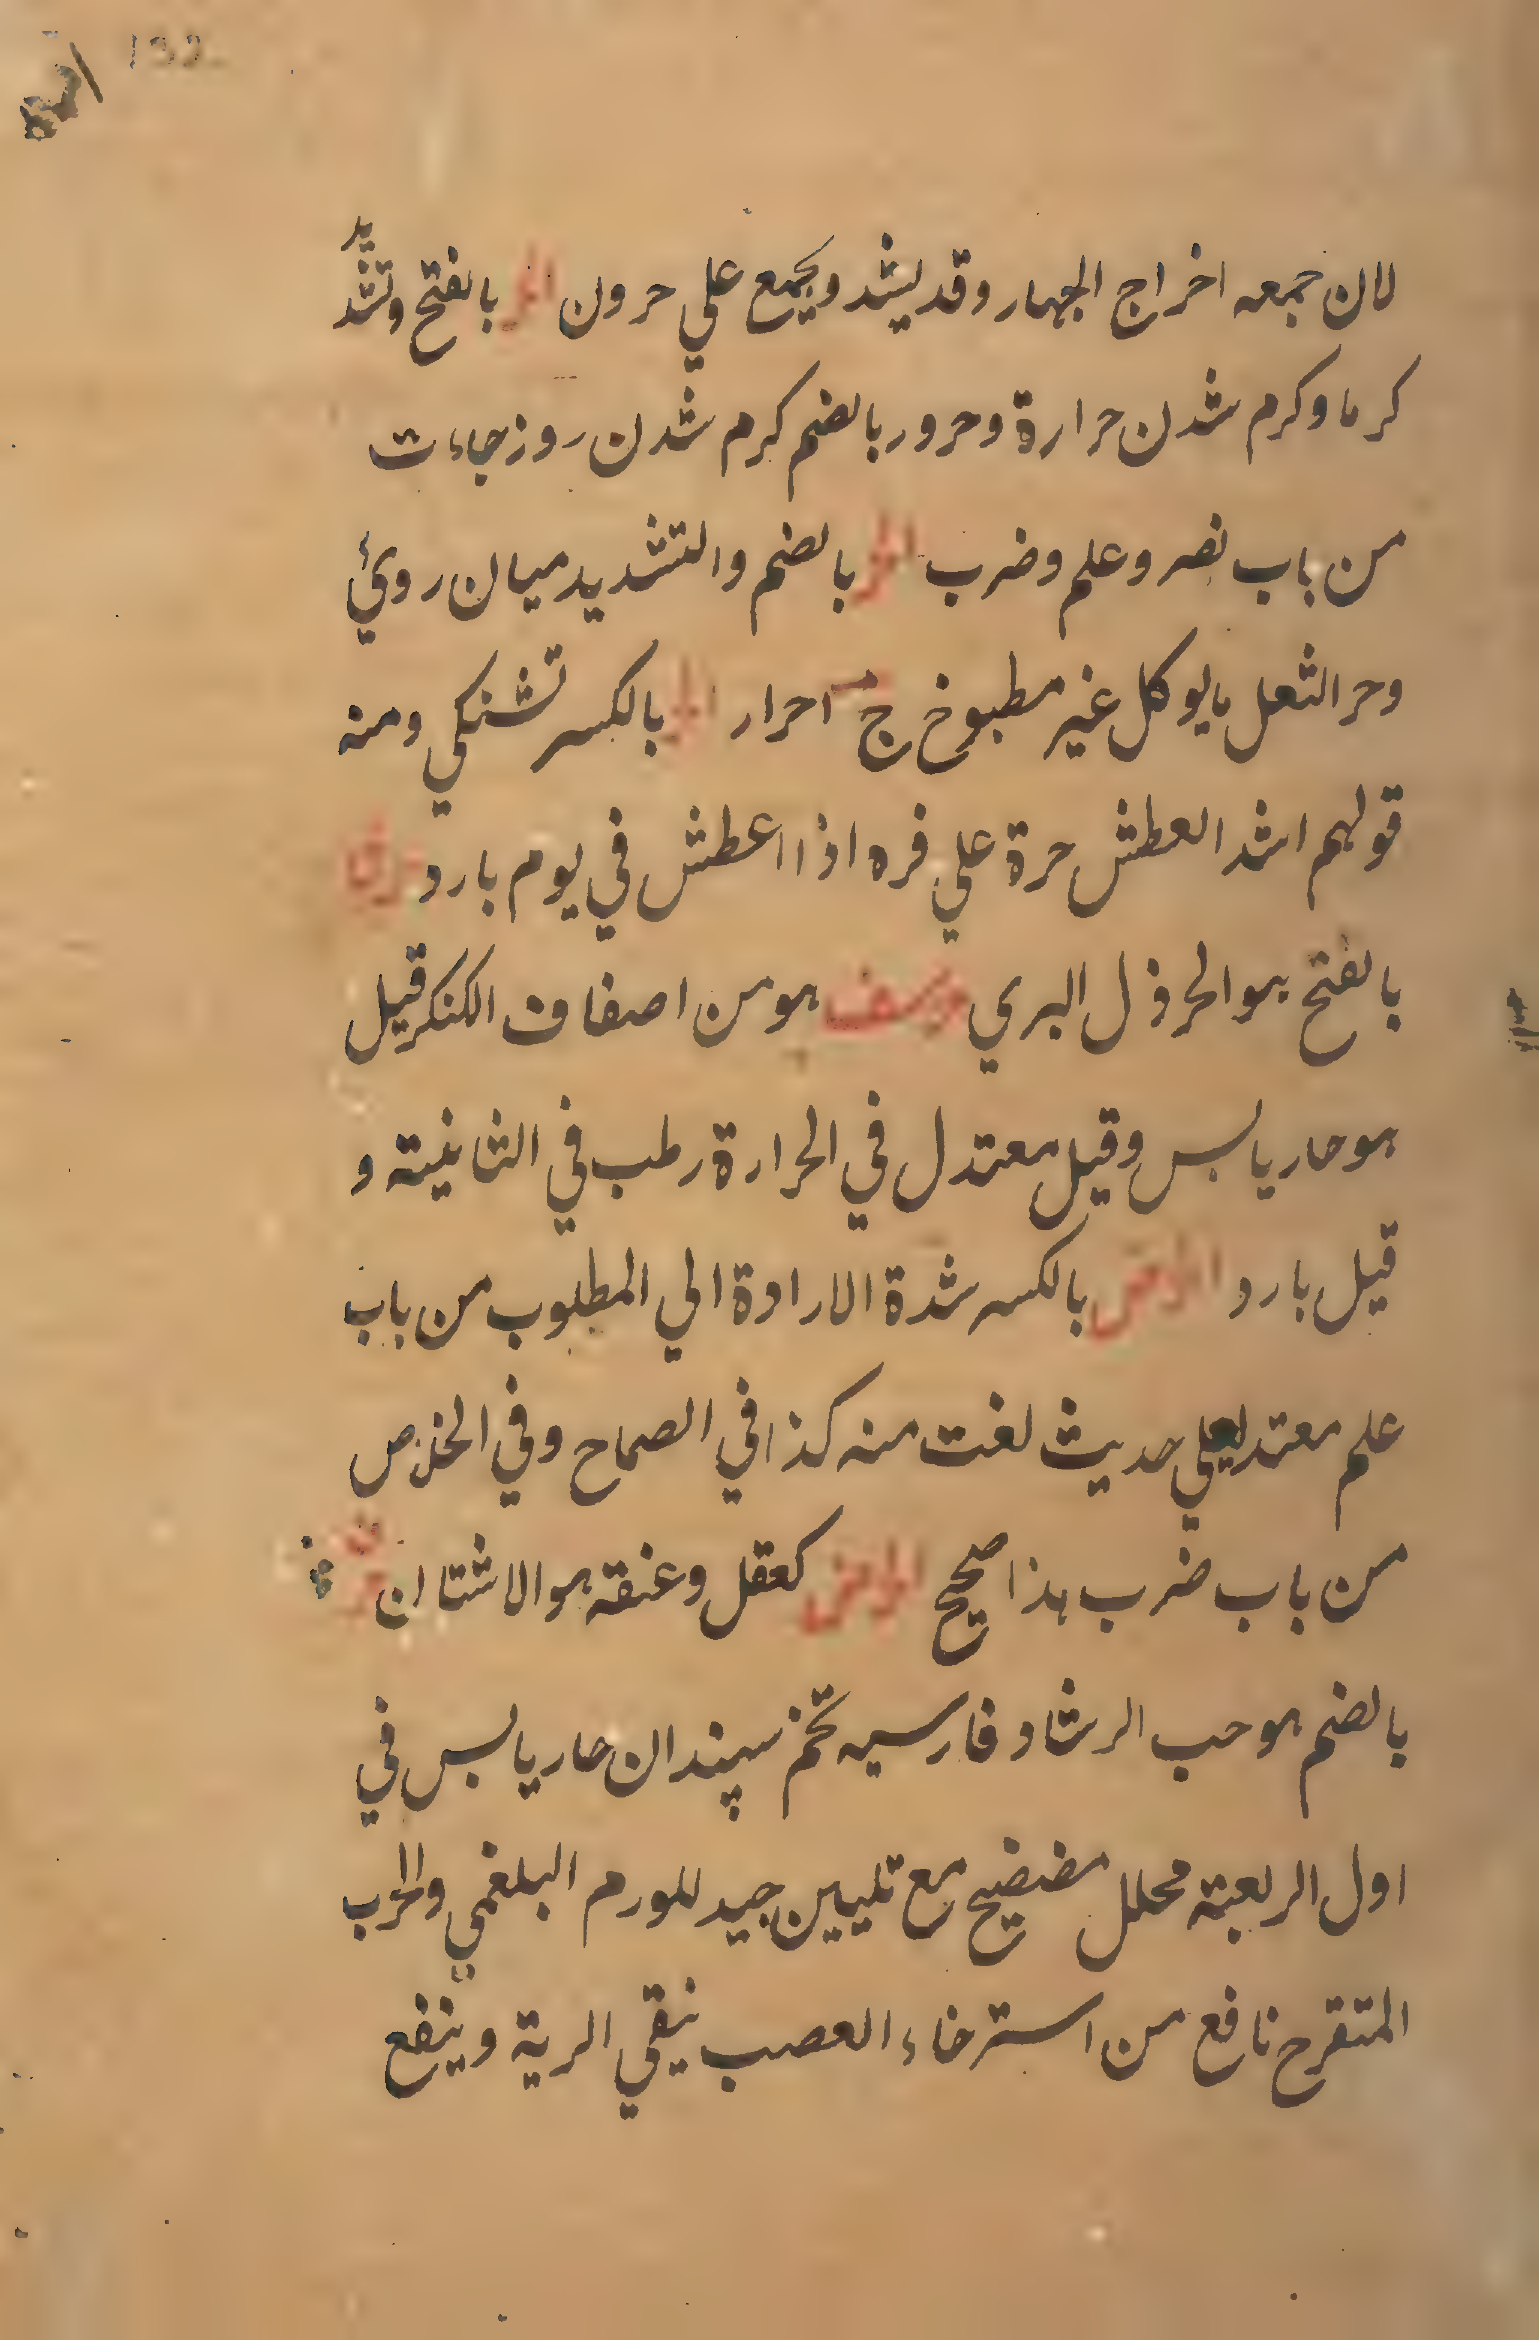 لان جمعه اخراج الجهار وقد يشد ويجمع علي حرون الحر بالفتح وتشديد
كرما وكرم شدن حرارة وحرور بالضم كرم شدن روز جاءت
من باب نصر وعلم وضرب الحر بالضم والتشديد ميان روئ
وحر الثعل مايوكل غير مطبوخ ج احرار الحر بالكسر تشنكي ومنه
قولهم اشد العطش حرة علي فره اذا اعطش في يوم بارد
بالفتح هو الحرذل البري حرشف هو من اصفاف الكنكر قيل
هو حار يابس وقيل معتدل في الحرارة رطب في الثانية و
قيل بارد الحرص بالكسر شدة الارادة الي المطلوب من باب
علم معتد بعلي حديث لغت منه كذا في الصماح وفي الخلاص
من باب ضرب هذا صحيح الحرض كعقل وعنقة هو الاشتان حرف
بالضم هو حب الرشاد فارسيه تخم سپندان حار يابس في
اول الربعة محلل مضضيح مع تليين جيد للورم البلغمي والحرب
المتقرح نافع من استرخاء العصب ينقي الرية وينفع